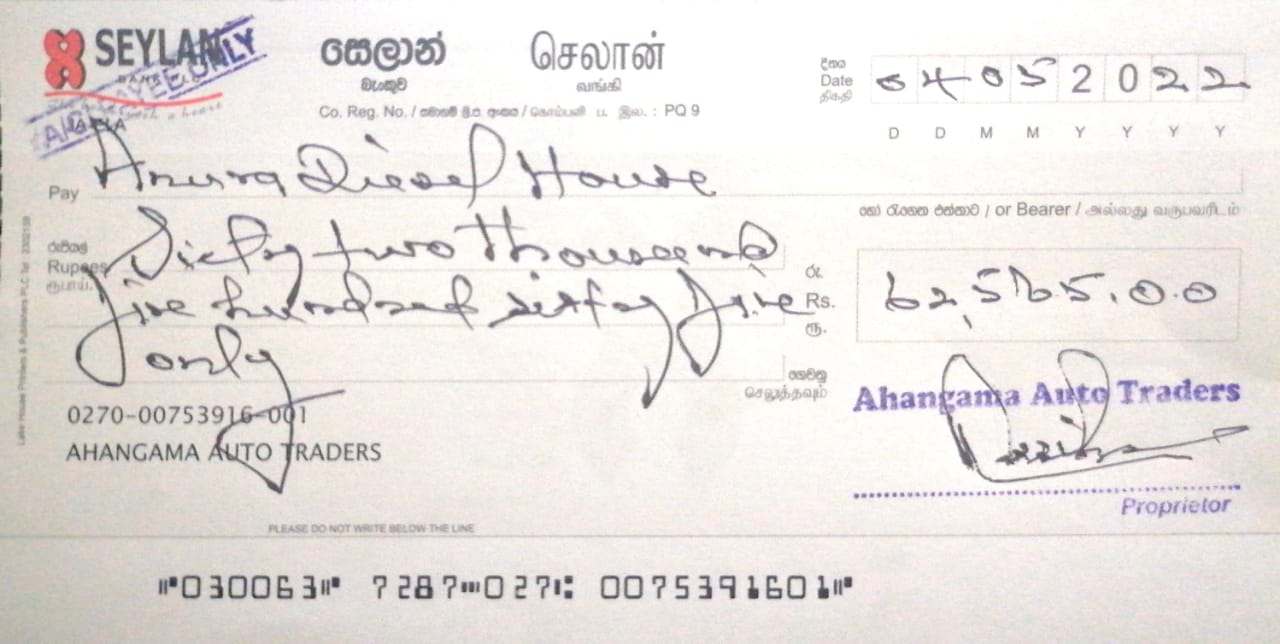 SEYLAN
BANK PLC
A/C PAYEE ONLY
JA-ELA
සෙලාන්
බැංකුව
செலான்
வங்கி
Co. Reg. No. / සමාගම් ලි.ප. අංකය / கொம்பனி ப. இல. : PQ 9
දිනය
Date
திகதி
04052022
D D M M Y Y Y Y
Pay Anura Diesel House
හෝ රැගෙන එන්නාට / or Bearer / அல்லது வருபவரிடம்
රුපියල්
Rupees
ரூபாய்.
Sixty two Thousand
five hundred sixty five
only
රු.
Rs.
ரூ.
62,565.00
ගෙවනු
செலுத்தவும்
0270-00753916-001
AHANGAMA AUTO TRADERS
Ahangama Auto Traders
Proprietor
PLEASE DO NOT WRITE BELOW THE LINE
⑈030063⑈ 7287⑉027⑆ 0075391601⑈